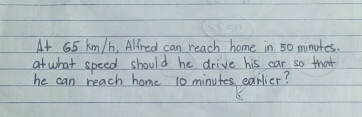 At 65 km/h, Alfred can reach home in 50 minutes.
at what speed should he drive his car so that
he can reach home 10 minutes earlier?